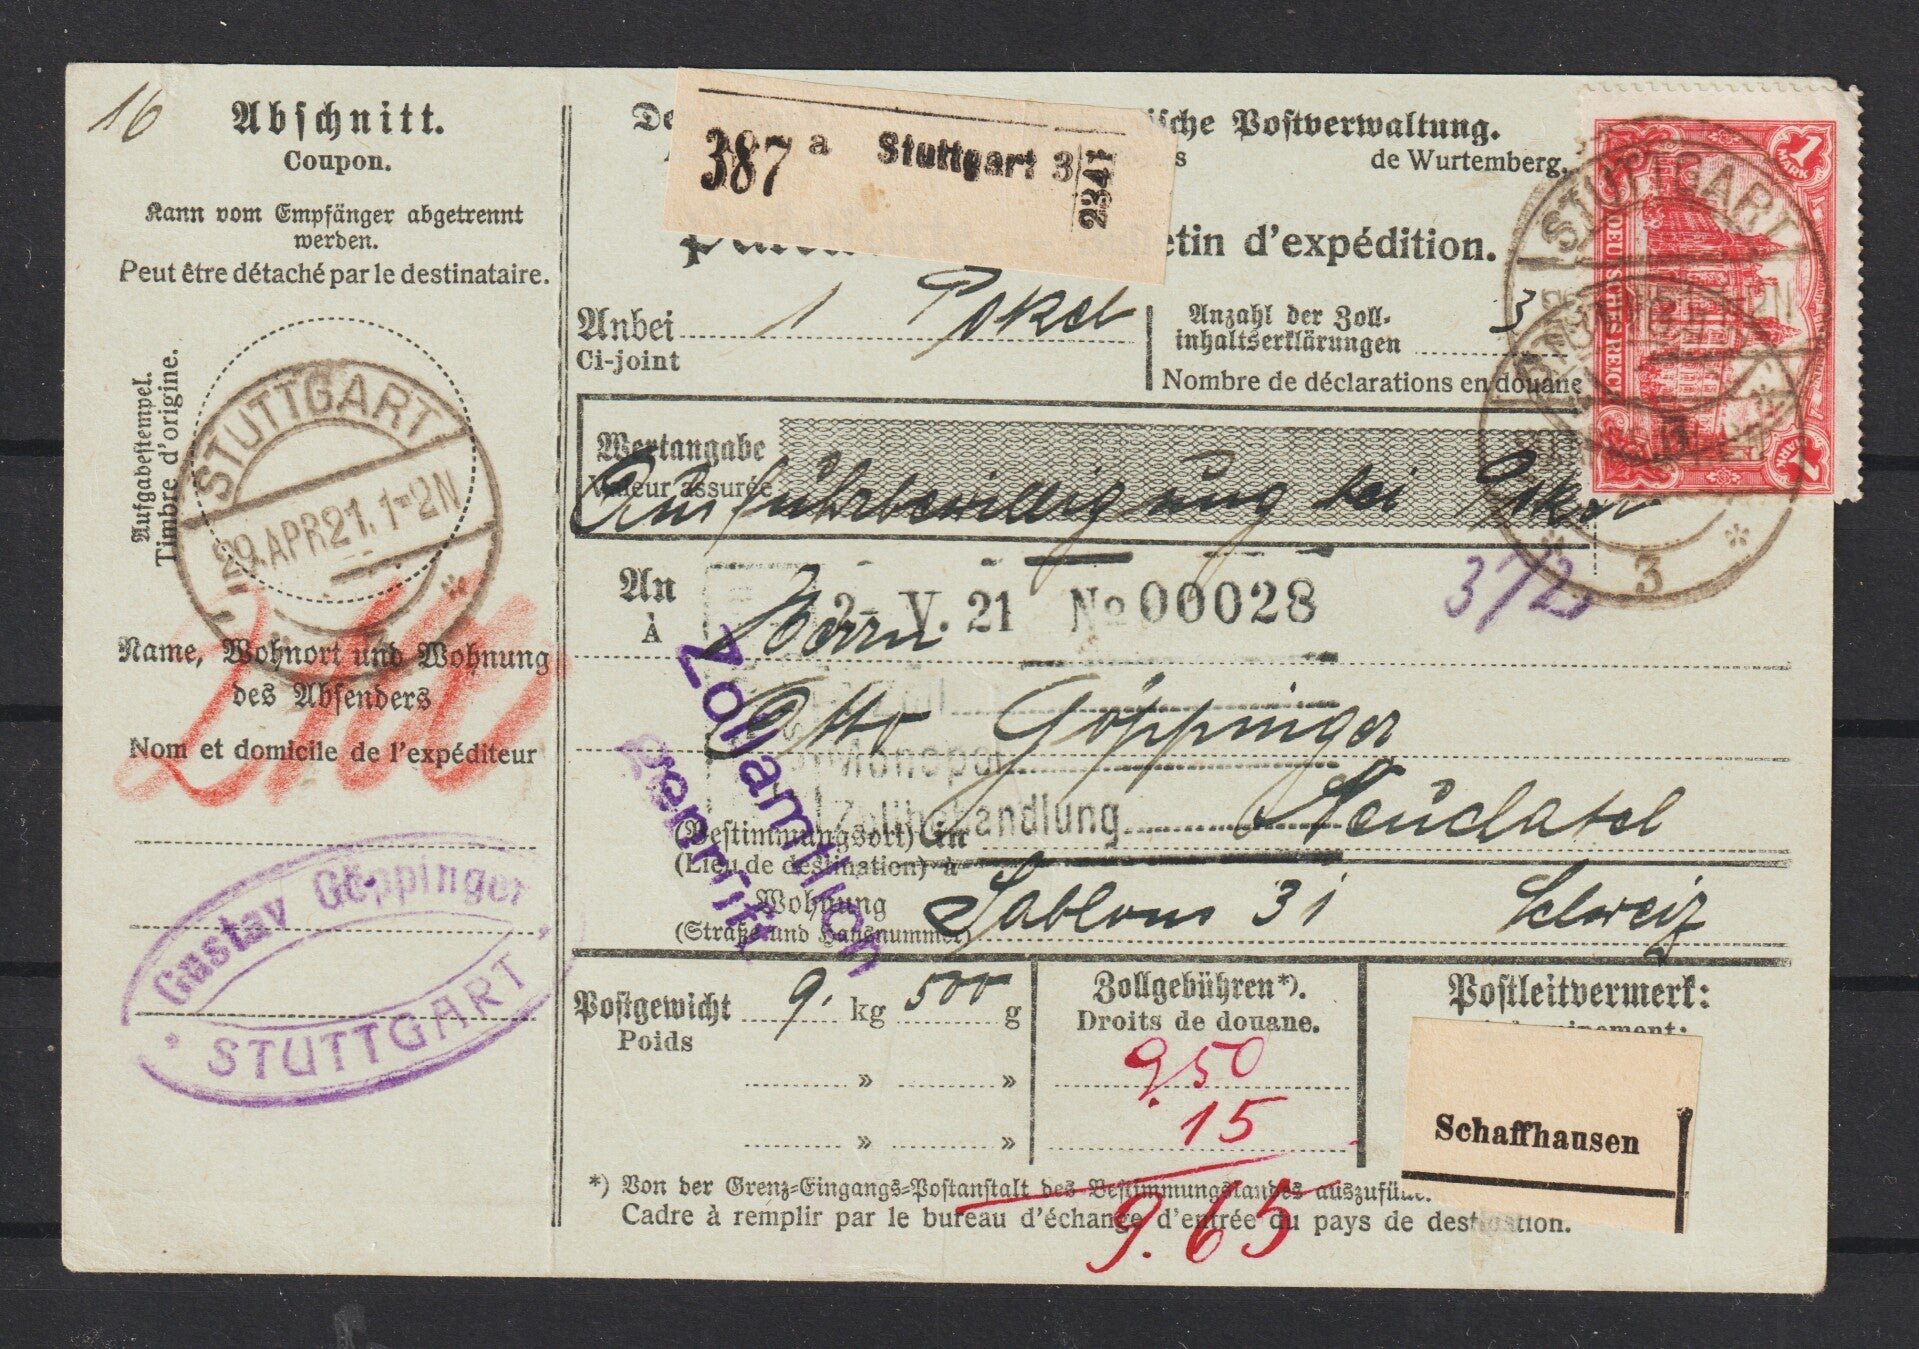 16
Abschnitt.
Coupon.
Kann vom Empfänger abgetrennt
werden.
Peut être détaché par le destinataire.
Aufgabestempel.
Timbre d'origine.
STUTTGART
29.APR21.1-2N
Name, Wohnort und Wohnung
des Absenders
Nom et domicile de l'expéditeur
Gustav Göppinger
STUTTGART
De
ische Postverwaltung.
de Wurtemberg.
387 a Stuttgart 3
2341
etin d'expédition.
Anbei 1 Paket
Ci-joint
Anzahl der Zoll-
inhaltserklärungen 3
Nombre de déclarations en douane
1 MARK
DEUTSCHES REICH
STUTTGART
3
Wertangabe
Valeur assurée
Ausfuhrbewilligung bei Paket
372
An
À
Herrn
2- V. 21 No 00028
Otto Göppinger
Monopol
Zollbehandlung
Zollamtlich
geprüft
(Bestimmungsort) in Neuchatel
(Lieu de destination) à
Wohnung
(Straße und Hausnummer)
Sablons 31 Schweiz
Postgewicht 9. kg 500 g
Poids
» »
» »
Zollgebühren*).
Droits de douane.
9.50
15
9.65
Postleitvermerk:
Schaffhausen
*) Von der Grenz-Eingangs-Postanstalt des Bestimmungslandes auszufüll
Cadre à remplir par le bureau d'échange d'entrée du pays de destination.